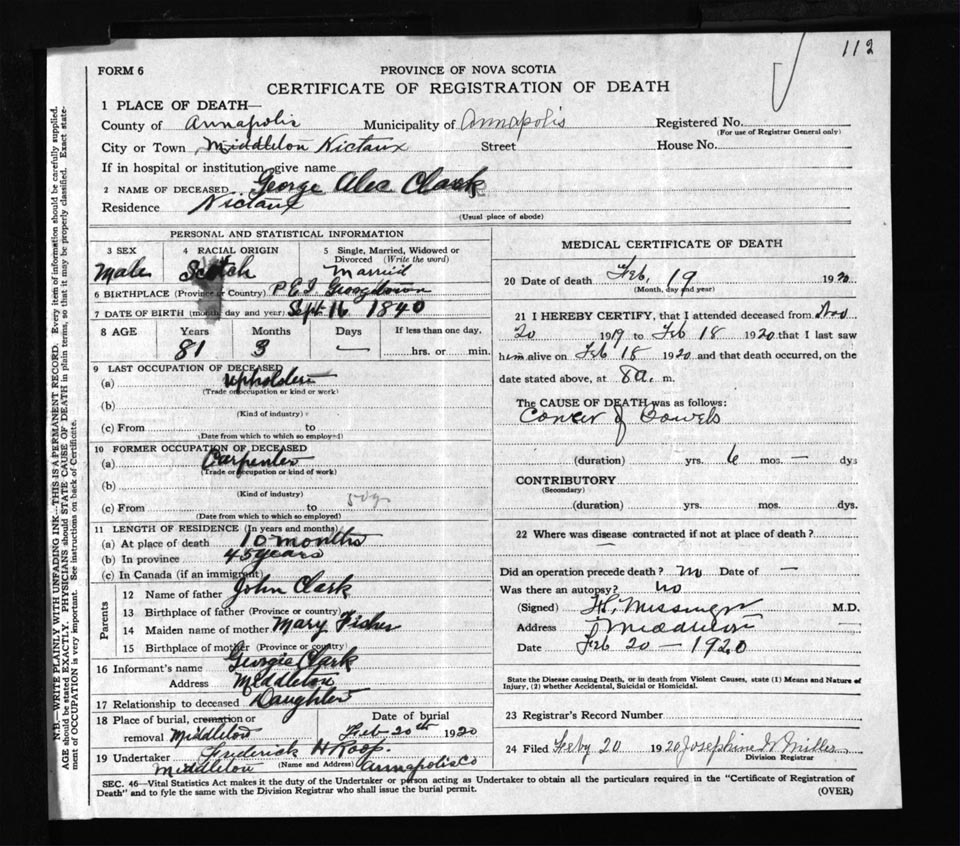 112
FORM 6
PROVINCE OF NOVA SCOTIA
CERTIFICATE OF REGISTRATION OF DEATH
1 PLACE OF DEATH—
County of Annapolis Municipality of Annapolis Registered No.
(For use of Registrar General only)
City or Town Middleton Nictaux Street House No.
If in hospital or institution, give name
2 NAME OF DECEASED George Alec Clark
Residence Nictaux
(Usual place of abode)
PERSONAL AND STATISTICAL INFORMATION
3 SEX 4 RACIAL ORIGIN 5 Single, Married, Widowed or
Divorced (Write the word)
Male Scotch Married
6 BIRTHPLACE (Province or Country) P.E.I. Georgetown
7 DATE OF BIRTH (month, day and year) Sept. 16 1840
8 AGE Years Months Days If less than one day,
81 3 — hrs. or min.
9 LAST OCCUPATION OF DECEASED
(a) Upholster
(Trade or occupation or kind or work)
(b)
(Kind of industry)
(c) From to
(Date from which to which so employed)
10 FORMER OCCUPATION OF DECEASED
(a) Carpenter
(Trade or occupation or kind of work)
(b)
(Kind of industry)
(c) From to
(Date from which to which so employed)
11 LENGTH OF RESIDENCE (In years and months)
(a) At place of death 10 months
(b) In province 45 years
(c) In Canada (if an immigrant)
Parents
12 Name of father John Clark
13 Birthplace of father (Province or country)
14 Maiden name of mother Mary Fisher
15 Birthplace of mother (Province or country)
16 Informant's name Georgie Clark
Address Middleton
17 Relationship to deceased Daughter
18 Place of burial, cremation or Date of burial
removal Middleton Feb 20th 1920
19 Undertaker Frederick H Roop.
Middleton (Name and Address) Annapolis Co
MEDICAL CERTIFICATE OF DEATH
20 Date of death Feb. 19 1920
(Month, day and year)
21 I HEREBY CERTIFY, that I attended deceased from Nov
20 1919 to Feb 18 1920 that I last saw
him alive on Feb 18 1920 and that death occurred, on the
date stated above, at 8 a. m.
The CAUSE OF DEATH was as follows:
Cancer of Bowels
(duration) yrs. 6 mos. — dys
CONTRIBUTORY
(Secondary)
(duration) yrs. mos. dys.
22 Where was disease contracted if not at place of death?
Did an operation precede death? No Date of —
Was there an autopsy? No
(Signed) Messinger M.D.
Address Middleton
Date Feb 20 – 1920
State the Disease causing Death, or in death from Violent Causes, state (1) Means and Nature of
Injury, (2) whether Accidental, Suicidal or Homicidal.
23 Registrar's Record Number
24 Filed Feby 20 1920 Josephine Miller
Division Registrar
SEC. 46—Vital Statistics Act makes it the duty of the Undertaker or person acting as Undertaker to obtain all the particulars required in the "Certificate of Registration of
Death" and to fyle the same with the Division Registrar who shall issue the burial permit.
(OVER)
N.B.—WRITE PLAINLY WITH UNFADING INK—THIS IS A PERMANENT RECORD. Every item of information should be carefully supplied.
AGE should be stated EXACTLY. PHYSICIANS should STATE CAUSE OF DEATH in plain terms, so that it may be properly classified. Exact state-
ment of OCCUPATION is very important. See instructions on back of Certificate.